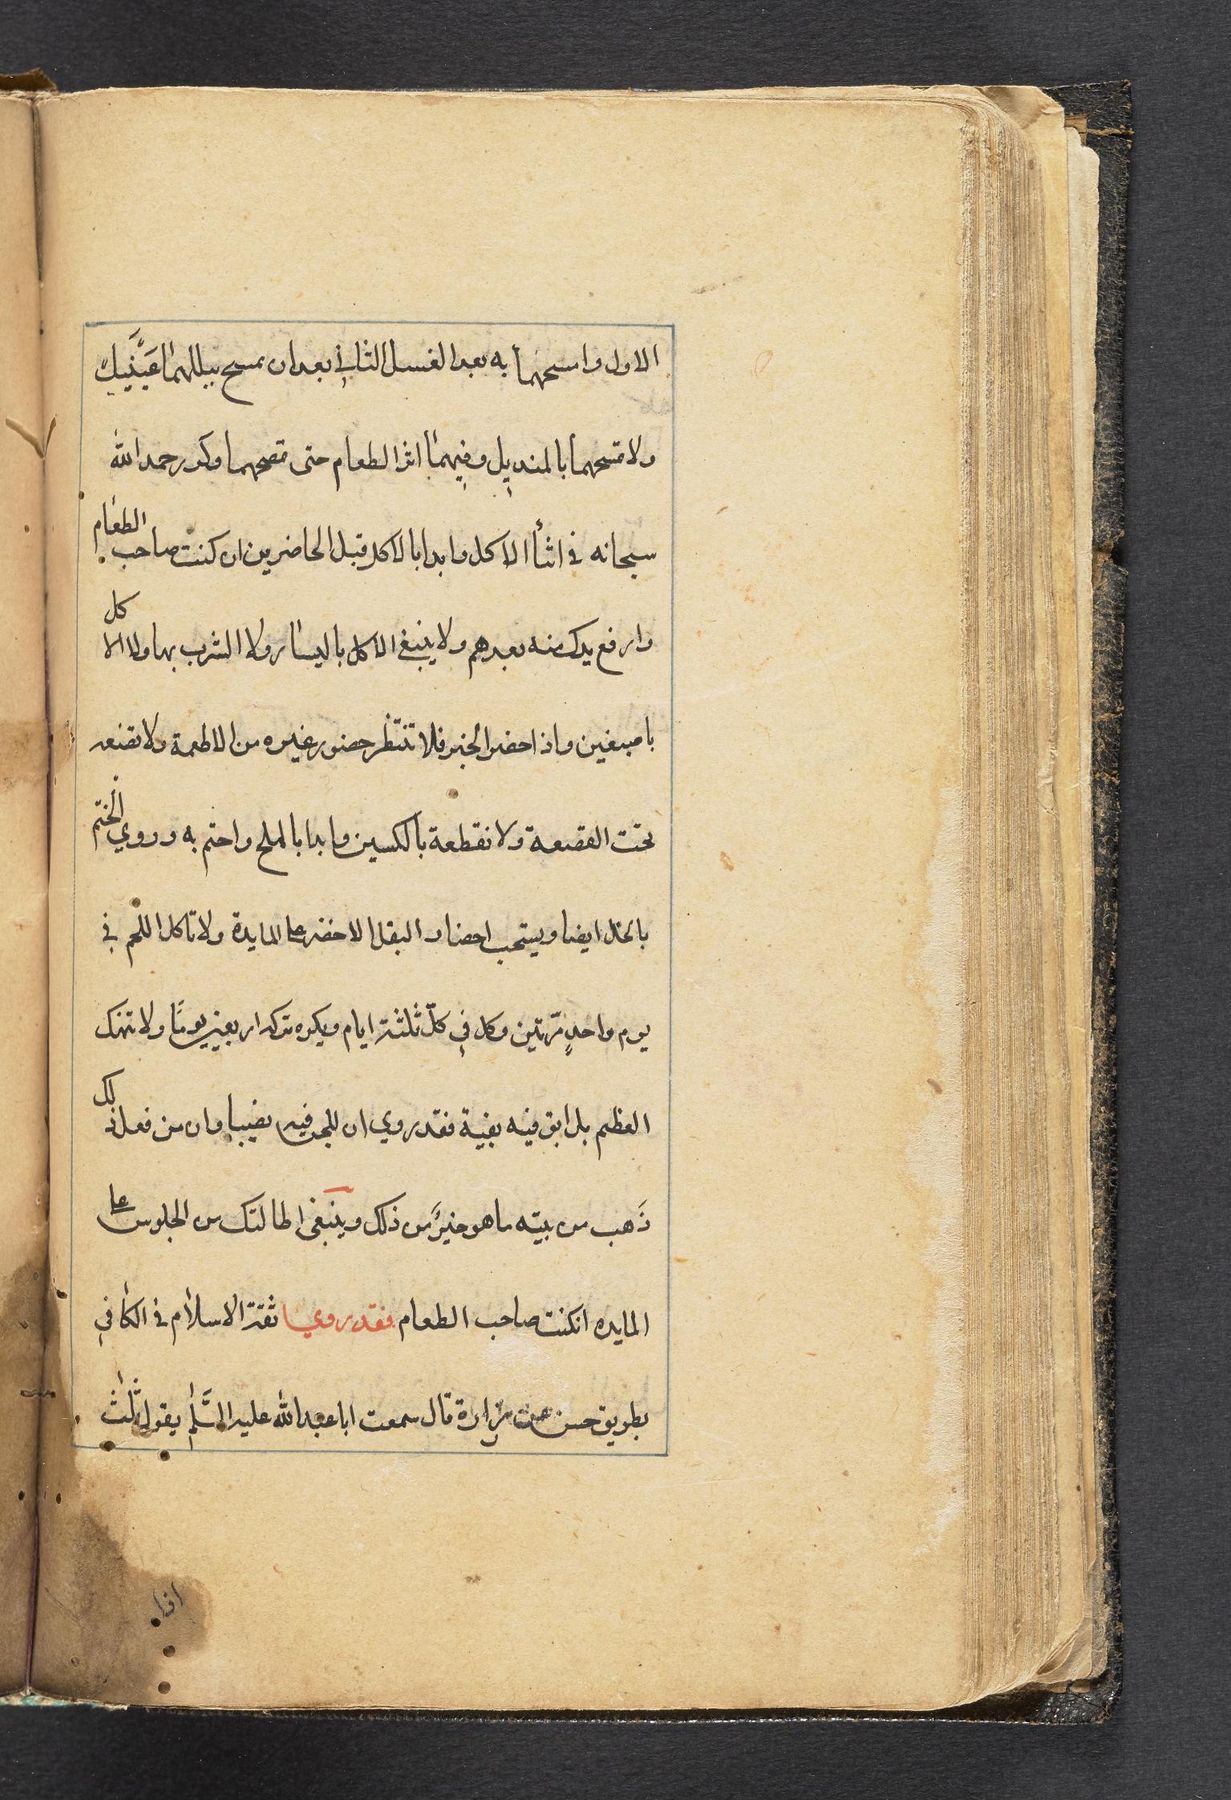 الاول وامسحهما به بعد الغسل الثاني بعد ان تمسح ببللهما عَيْنَيك
ولا تمسحهما بالمنديل وفيهما اثر الطعام حتى تمصهما وكرر حمد الله
سبحانه في اثنأ الاكل وابدا بالاكل قبل الحاضرين ان كنت صاحب الطعام
وارفع يدك منه بعدهم ولا ينبغي الاكل باليسار ولا الشرب بها ولا الاكل
باصبعين واذا حضر الخبز فلا تنتظر حضور غيره من الاطعمة ولا تضعه
تحت القصعة ولا تقطعه بالسكين وابدا بالملح واختم به وروي الختم
بالخل ايضا ويستحب احضار البقل الاخضر على المايدة ولا تاكل اللحم في
يوم واحدٍ مرّتين وكل في كلّ ثلثة ايام ويكره تركه اربعين يومًا ولا تنهك
العظم بل ابق فيه بقية فقد روي ان للجن فيه نصيبا وان من فعل ذلك
ذَهب من بيته ما هو خيرٌ من ذلك وينبغى اطالتك من الجلوس على
المايده انكنت صاحب الطعام فقد روي ثقة الاسلام في الكافي
بطريق حسن عن زرارة قال سمعت ابا عبد الله عليه السَّلم يقول ثلث
اذا